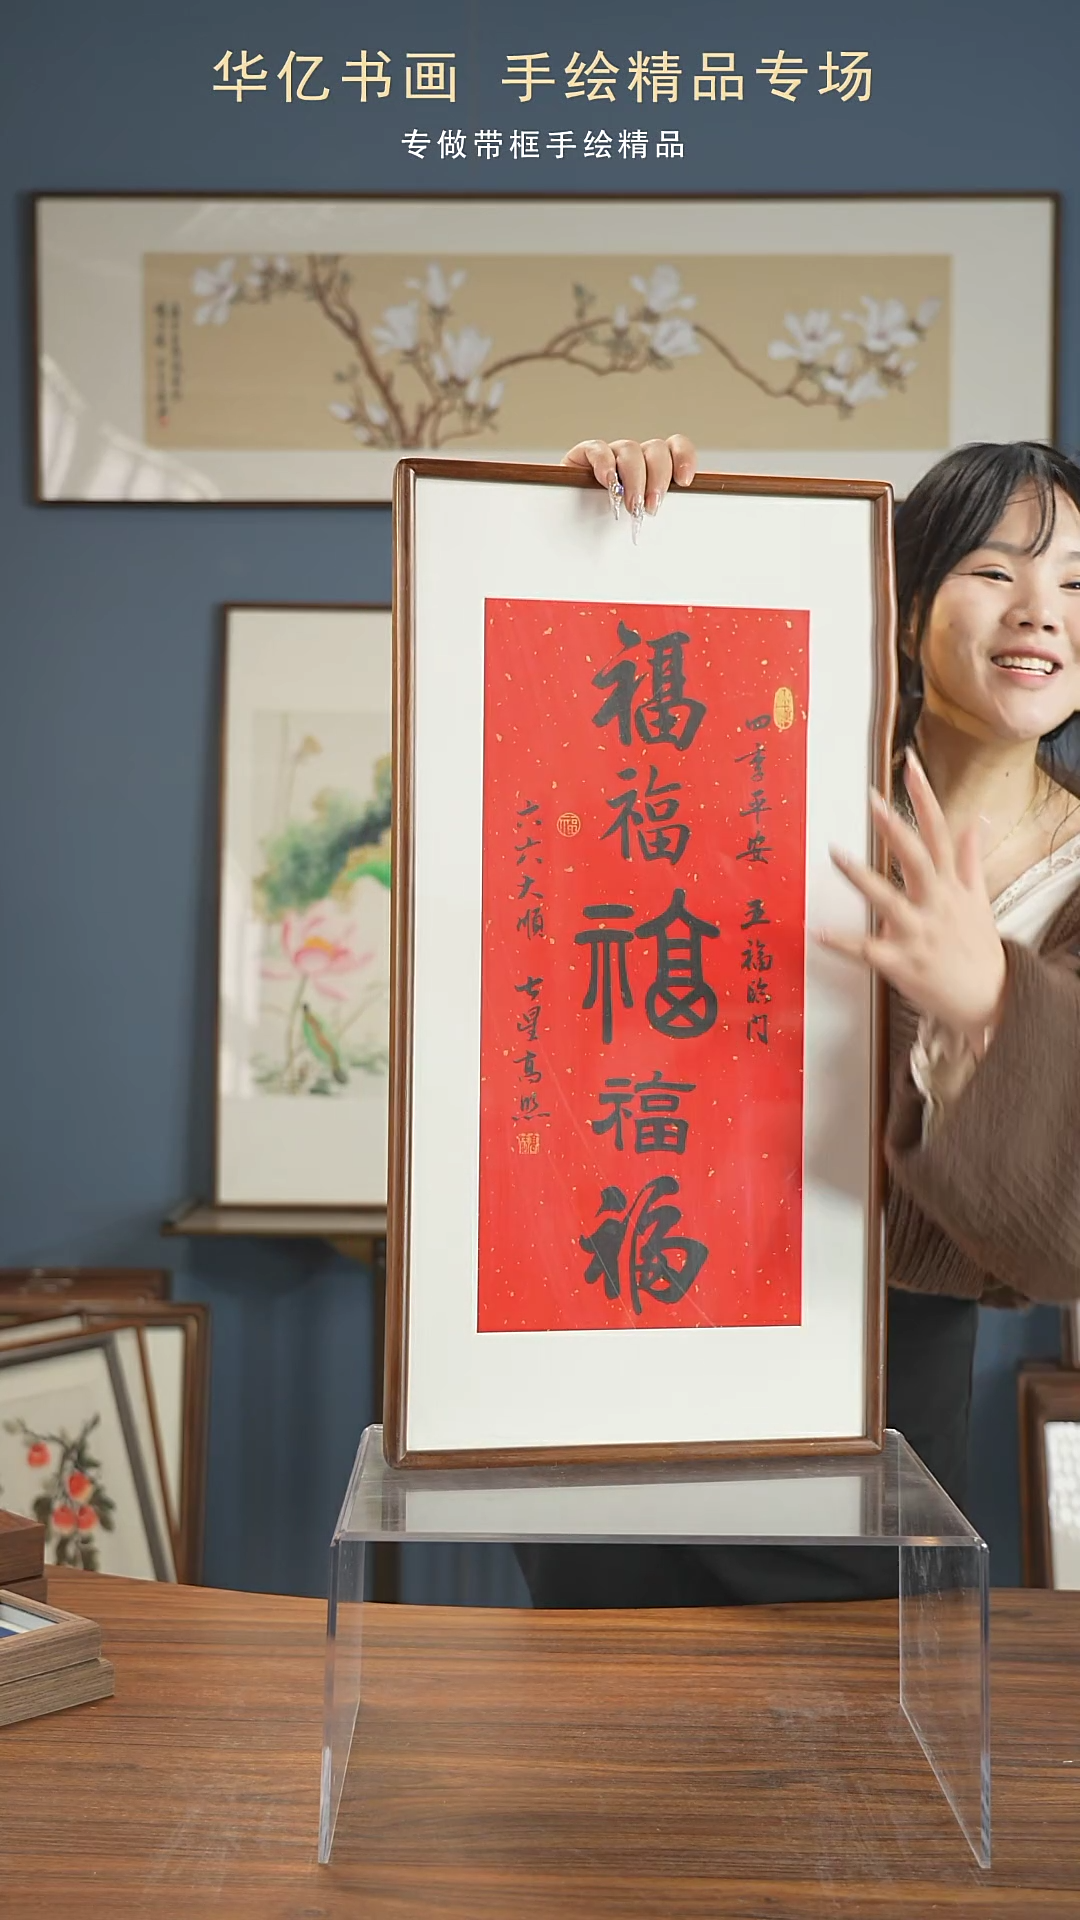 华亿书画 手绘精品专场
专做带框手绘精品
四季平安 五福临门
福
福
福
福
福
六六大順 七星高照
福